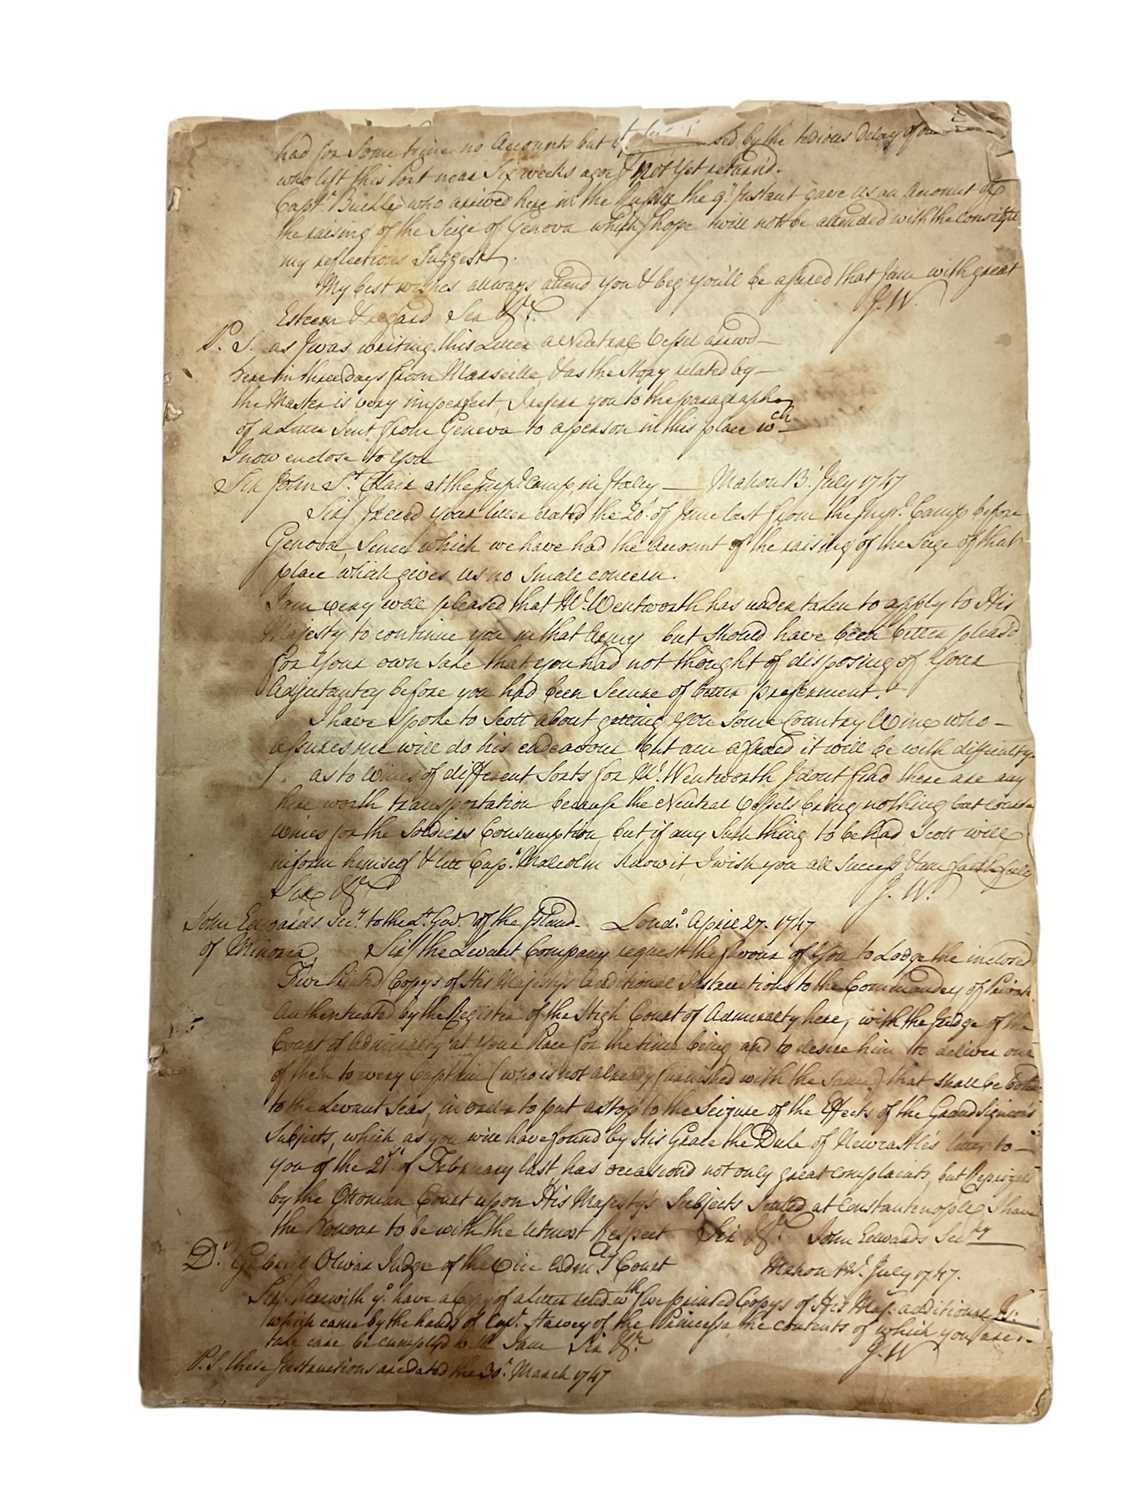 had for Some time no Accounts but of sed by the tedious Delay of
who left this Port near Six weeks agoe & not yet return'd.
Capt. who arrived here in the the 9th Instant gave us an account of
the raising of the Seige of Genova which I hope will not be attended with the
my reflections Suggest.
My best wishes always attend you & beg you'll be assured that I am with great
Esteem & regard Sir &c.
J. W.
P. S. as I was writing this Letter a Neutral Vessel arrived
here in three days from Marseille, & as the Story related by
the Master is very imperfect, I refer you to the paragraph
of a Letter Sent from Genova to a person in this place wch
I now enclose to You
Sir John St. Clair at the Camp in Italy — Mahon 13 July 1747
Sir/ I received your Letter dated the 20th of June last from the Camp before
Genova, Since which we have had the Account of the raising of the Seige of that
place which gives us no Small concern.
I am very well pleased that Mr. Wentworth has undertaken to apply to His
Majesty to continue you in that Army but should have been better pleas'd
for Your own Sake that you had not thought of disposing of Your
Adjutantcy before you had been Secure of better preferment.
I have Spoke to Scott about getting you Some Country Wine who
assures me will do his endeavour but am afraid it will be with difficulty.
as to Wines of different Sorts for Mr. Wentworth I dont find there are any
here worth transportation because the Neutral Vessels bring nothing but coarse
Wines for the Soldiers Consumption but if any Such thing to be had Scott will
inform himself & let Capt. Malcolm know it I wish you all Success & am faithfully
Sir &c.
J. W.
John Edwards Secy. to the Lt. Gov. of the Island Lond. April 27. 1747
of Minorca. Sir/ the Levant Company request the favour of You to Lodge the inclosed
Five Printed Copys of His Majesty's Additional Instructions to the Commanders of
Authenticated by the Register of the High Court of Admiralty here, with the Judge of the
Court of Admiralty at Your Place for the time being, and to desire him to deliver one
of them to every Captain (who is not already furnished with the Same) that shall be
to the Levant Seas, in order to put a Stop to the Seizure of the Effects of the Grand Signior's
Subjects, which as you will have found by His Grace the Duke of Newcastle's Letter to
you of the 21st of February last has occasion'd not only great complaints, but
by the Ottoman Court upon His Majesty's Subjects Settled at Constantinople, I have
the Honour to be with the utmost Respect Sir &c. John Edwards Secry
Dr. Olivar Judge of the Vice Adm.ty Court Mahon July 1747.
Sir/ herewith yo. have a Copy of a Letter wth five printed Copys of His Maj. additional
which came by the hands of Capt. of the Princessa the contents of which you are
take care be complyed with I am Sir &c.
J. W
P. S. these Instructions are dated the 30th. March 1747